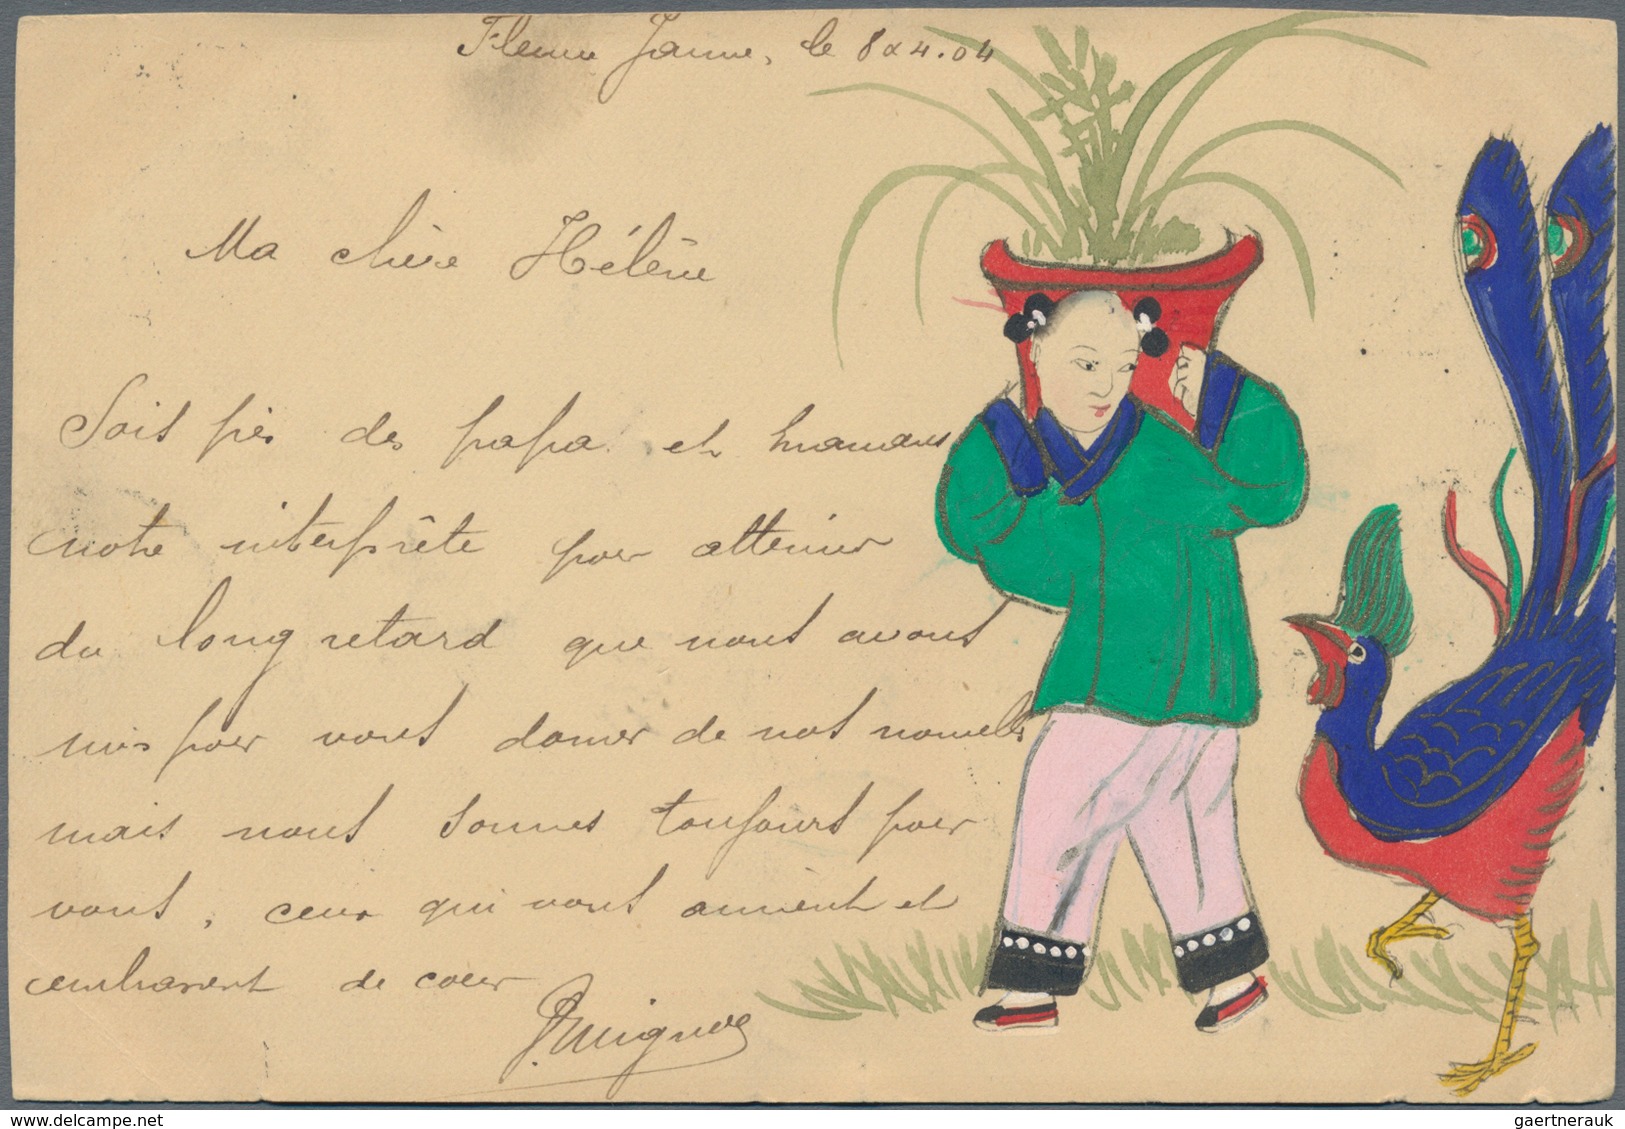 Fleuve Jaune, le 8 4.04
Ma chère Hélène
Sois près de papa et maman
notre interprête pour attenuer
du long retard que nous avons
mis pour vous donner de nos nouvelles
mais nous sommes toujours pour
vous, ceux qui vous aiment et
embrassent de coeur
gaertnerauk